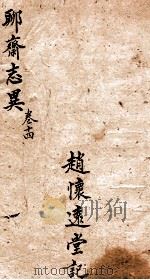 聊齋志異
卷十四
趙懷遠堂記